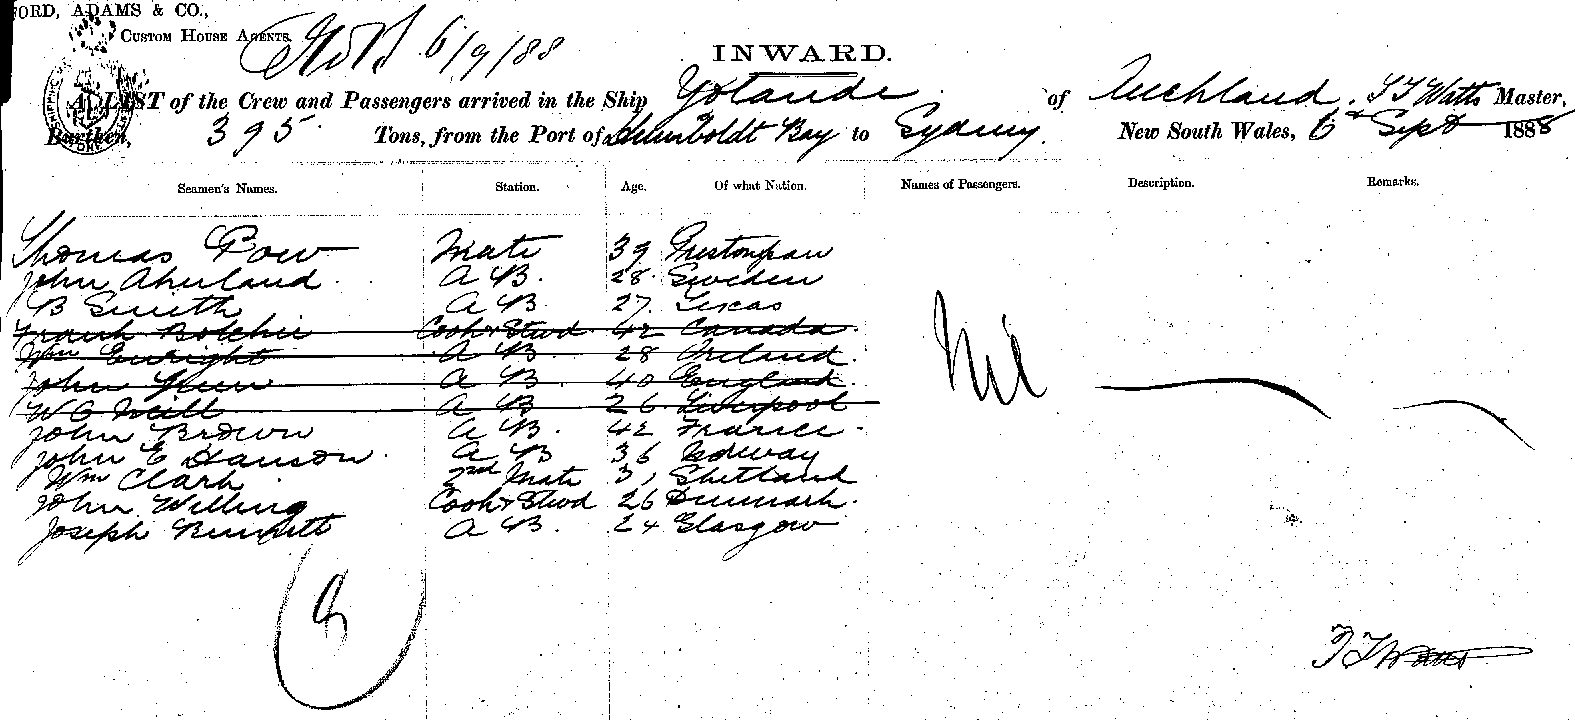 FORD, ADAMS & CO.,
CUSTOM HOUSE AGENTS.
6/9/88
INWARD.
A LIST of the Crew and Passengers arrived in the Ship Yolande of Auckland, T J Watts Master,
Burthen, 395 Tons, from the Port of Humboldt Bay to Sydney. New South Wales, 6th Sept 1888
Seamen's Names. Station. Age. Of what Nation. Names of Passengers. Description. Remarks.
Thomas Pow Mate 39 Prestonpan
John A B. 28 Sweden
B Smith A B. 27. Texas
Frank Botchie Cook & Stwd 42 Canada.
Wm Enright A B. 28 Ireland.
John Gunn A B. 40 England.
W O Neill A B 26 Liverpool
John Brown A B. 42 France.
John E Hanson. A B 36 Norway
Wm Clark 2nd Mate 31 Shetland
John Willing Cook & Stwd 26 Denmark.
Joseph Bennett A B. 24 Glasgow
Nil
T J Watts